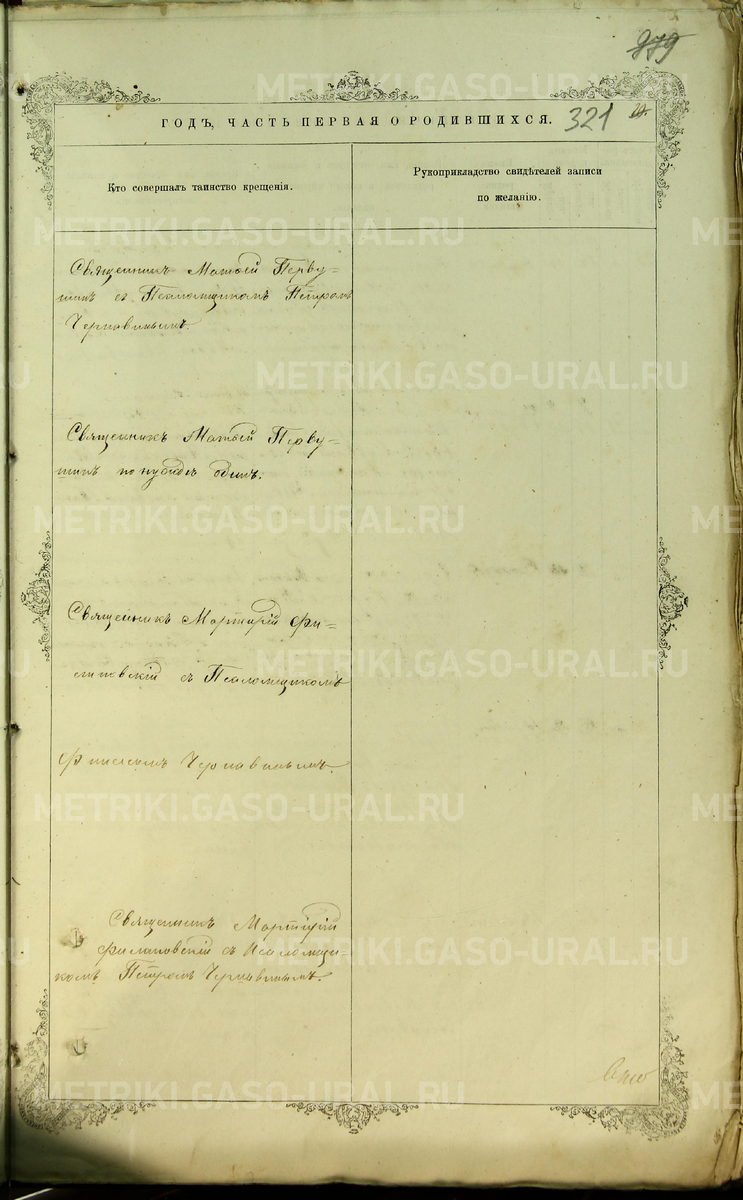 379
ГОДЪ, ЧАСТЬ ПЕРВАЯ О РОДИВШИХСЯ.
321
Кто совершалъ таинство крещенія.
Рукоприкладство свидѣтелей записи
по желанію.
Священникъ Матѳей Перву-
шинъ съ Псаломщикомъ Петромъ
Чернавинымъ.
Священникъ Матѳей Перву-
шинъ по нуждѣ одинъ.
Священникъ Мартирій Фи-
липовскій съ Псаломщикомъ
Чернавинымъ.
Священникъ Мартирій
Филиповскій съ Псаломщи-
комъ Петромъ Чернавинымъ.
METRIKI.GASO-URAL.RU